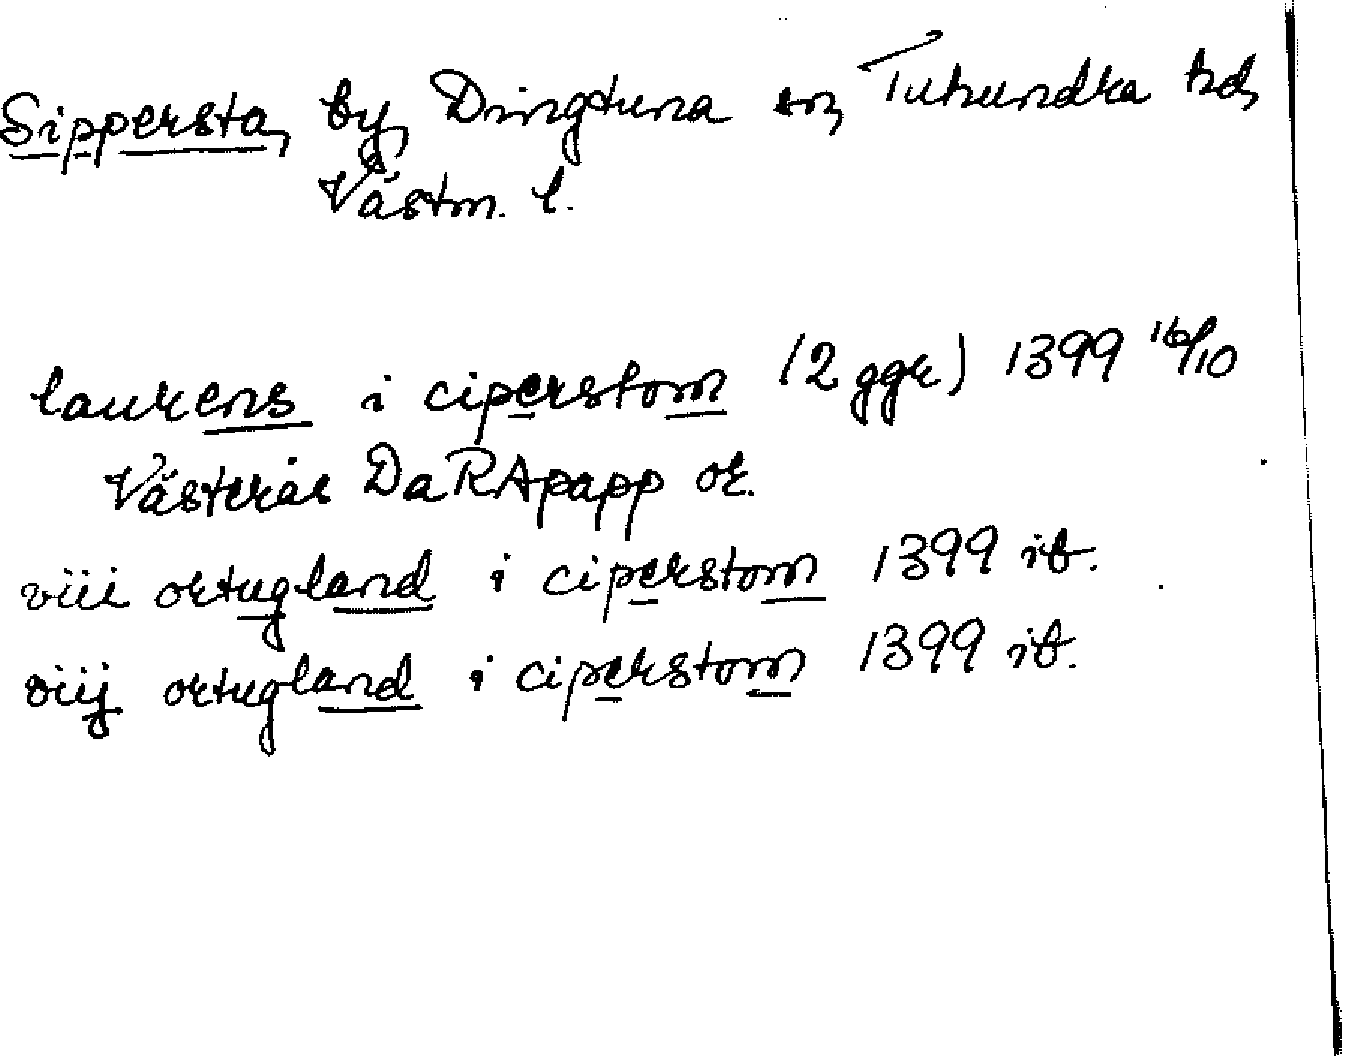 Sippersta, by, Dingtuna sn, Tuhundra hd,
Västm. l.
laurens i ciperstom (2 ggr) 1399 16/10
Västerås DaRApapp or.
viii ortugland i ciperstom 1399 ib.
viij ortugland i ciperstom 1399 ib.